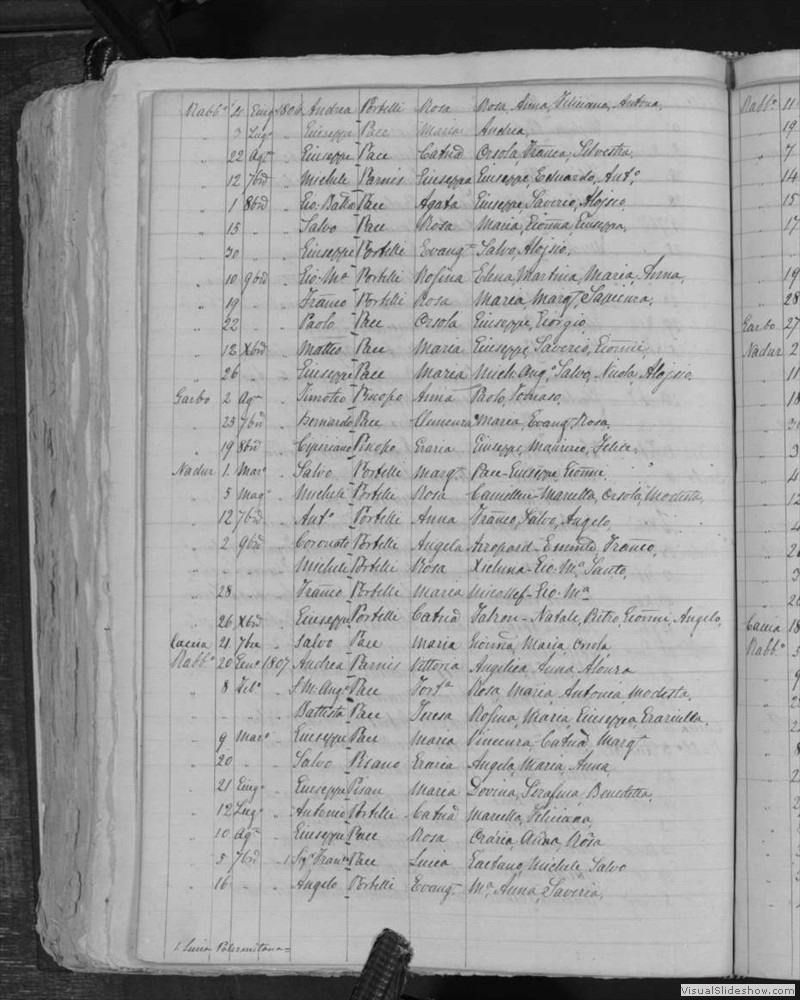 Rabb.º 4 Giug.º 1806 Andrea Portelli Rosa Rosa, Anna, Feliciana, Antona,
" 3 Lug.º " Giuseppe Pace Maria Andrea,
" 22 Ag.º " Giuseppe Pace Catnã Orsola, Franca, Silvestra,
" 12 7bre " Michele Parnis Giuseppa Giuseppe, Eduardo, Ant.º
" 1 8bre " Gio: Batta Pace Agata Giuseppe, Saverio, Alojsio,
" 15 " " Salvo Pace Rosa Maria, Gionna, Giuseppa,
" 30 " " Giuseppe Portelli Evang.ª Salvo, Alojsio,
" 10 9bre " Gio: Mª Portelli Rosina Elena, Martina, Maria, Anna,
" 19 " " Franco Portelli Rosa Maria, Marg.ª
" 22 " " Paolo Pace Orsola Giuseppe, Giorgio,
" 12 Xbre " Matteo Pace Maria Giuseppe, Saverio, Gionni,
" 26 " " Giuseppe Pace Maria Mich: Ang.º, Salvo, Nicola, Alojsio,
Garbo 2 Ag.º " Timoteo Anna Paolo, Tomaso,
" 23 7bre " Bernardo Pace Maria, Evang.ª, Rosa,
" 19 8bre " Cipriano Grazia Giuseppe, Maurizio, Felice,
Nadur 1 Mar.º " Salvo Portelli Marg.ª Pace - Giuseppe, Gionni,
" 5 Mag.º " Michele Portelli Rosa Camilleri - Marietta, Orsola, Modesta,
" 12 7bre " Ant.º Portelli Anna Franco, Salvo, Angelo,
" 2 9bre " Coronato Portelli Angela Azzopard - Franco,
" " " Michele Portelli Rosa Xicluna - Gio: Mª, Santo,
" 28 " " Franco Portelli Maria Micallef - Gio: Mª
" 26 Xbre " Giuseppe Portelli Catnã Falzon - Natale, Pietro, Gionni, Angelo,
Caccia 21 7bre " Salvo Pace Maria Gionna, Maria, Orsola
Rabb.º 20 Gen.º 1807 Andrea Parnis Vittoria Angelica, Anna, Alonza
" 8 Feb.º " Pace Rosa, Maria, Antonia, Modesta,
" " " Battista Pace Teresa Rosina, Maria, Giuseppa, Graziulla,
" 9 Mar.º " Giuseppe Pace Maria Vincenza, Catnã, Marg.ª
" 20 " " Salvo Pisano Grazia Angela, Maria, Anna,
" 21 Giug.º " Giuseppe Pisan Maria Serafina, Benedetta,
" 12 Lug.º " Antonio Portelli Catnã Marietta, Feliciana,
" 10 Ag.º " Giuseppe Pace Rosa Grazia, Anna, Rosa
" 5 7bre " 1 Sig.º Fran.co Pace Lucia Gaetano, Michele, Salvo
" 16 " " Angelo Portelli Evang.ª Mª Anna, Saveria,
1. Lucia Palermitana=
Rabb.º 11
19
7
14
15
17
19
28
Garbo 27
Nadur 2
11
18
3
4
12
4
3
Caccia 18
Rabb.º 5
9
VisualSlideshow.com